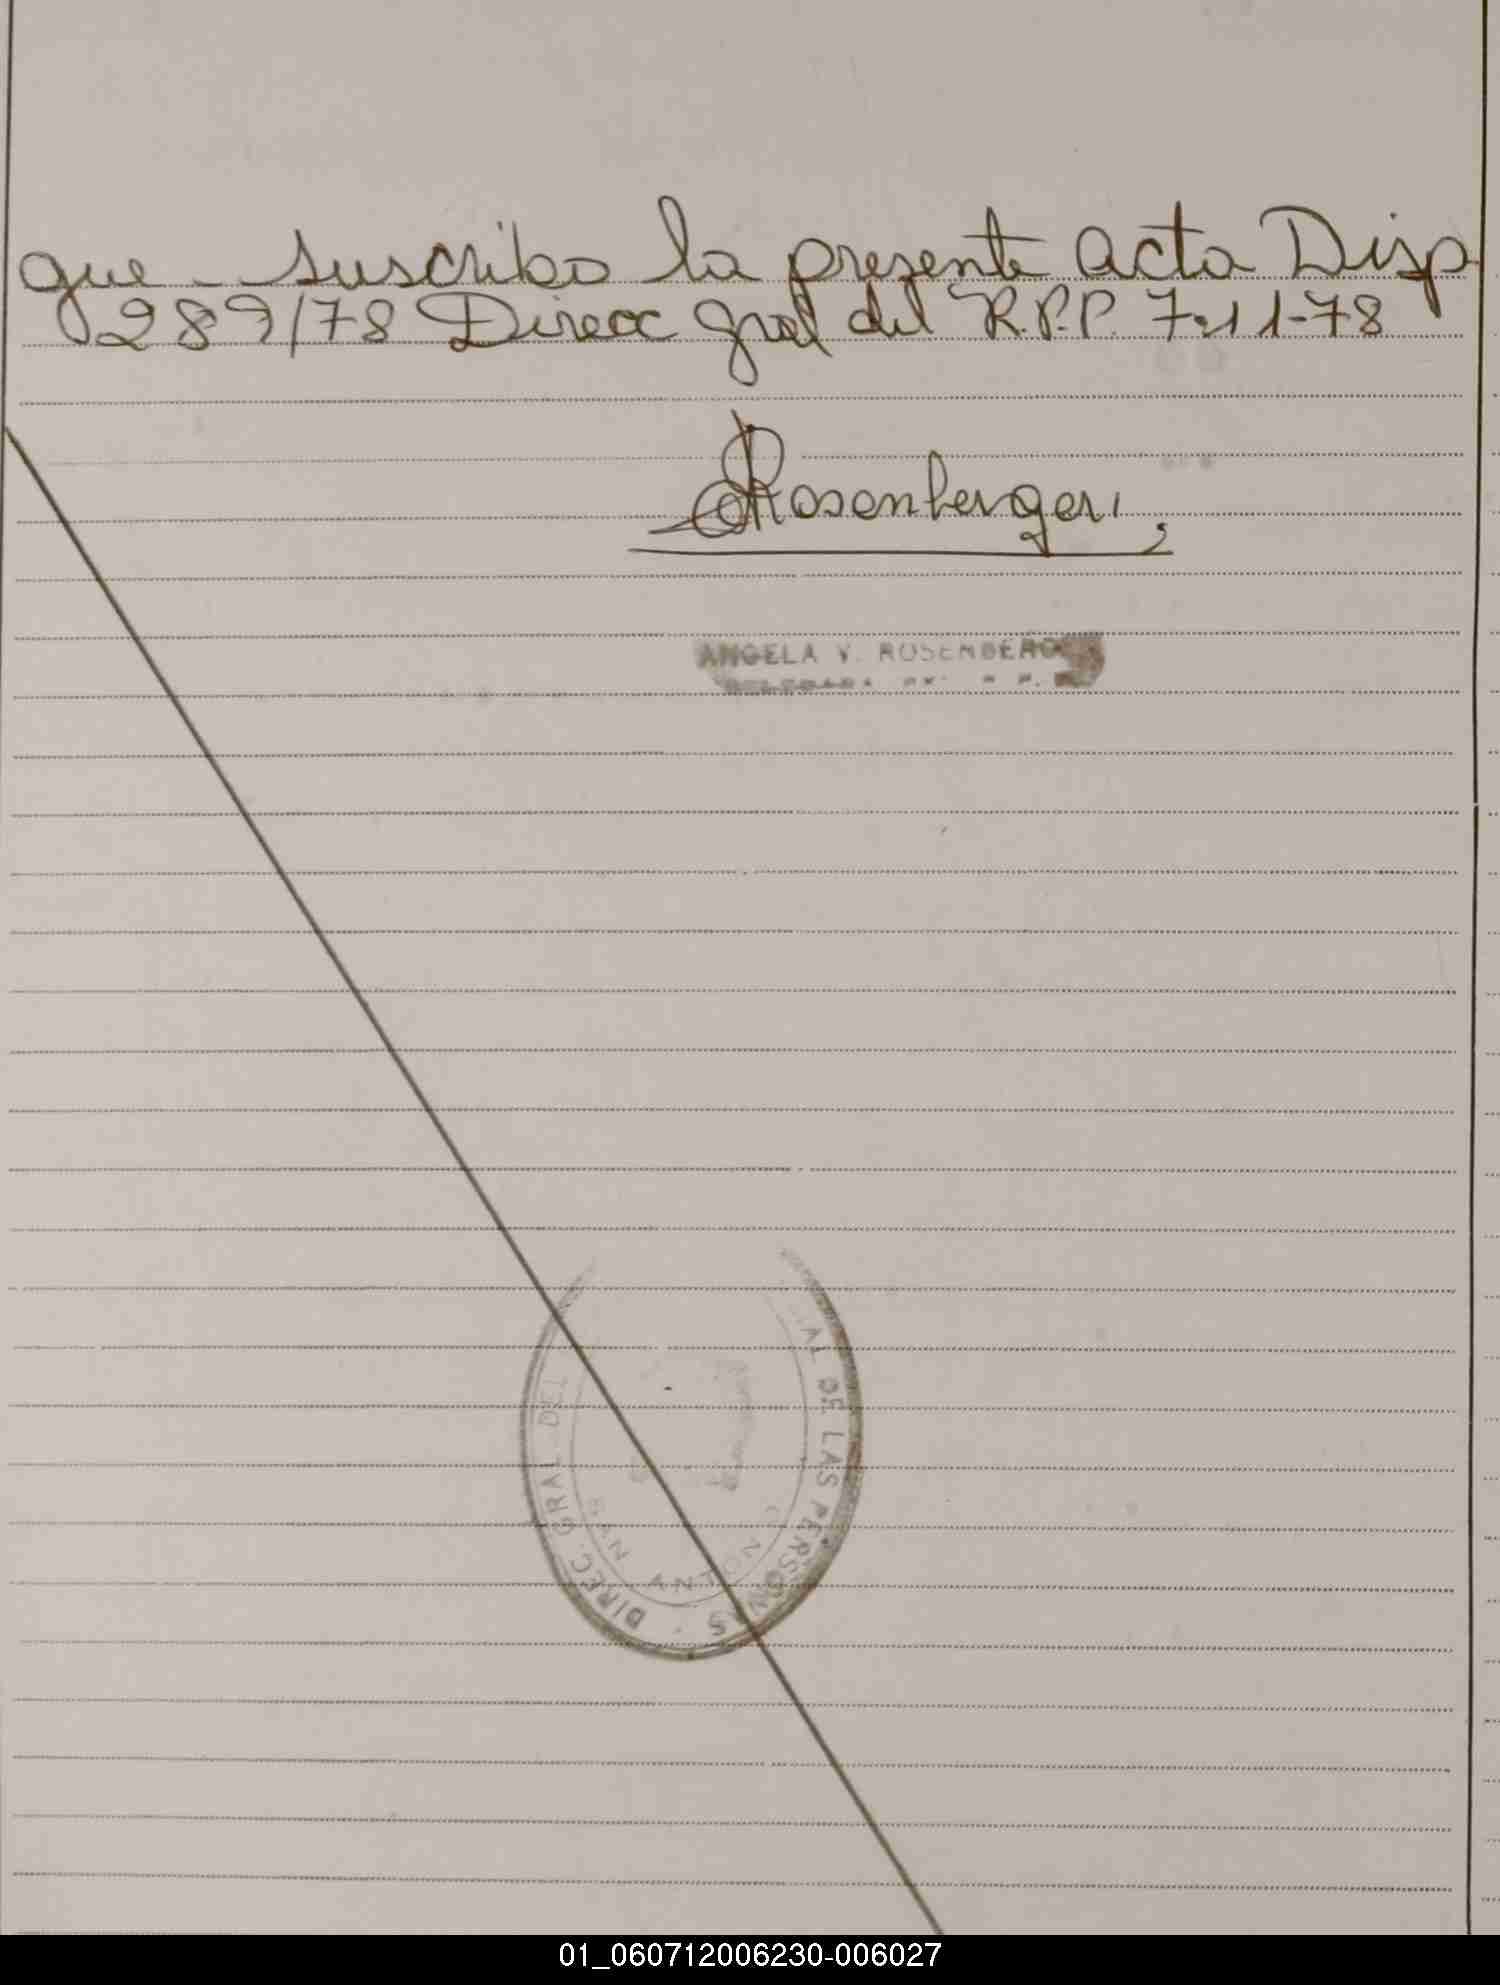 que suscribo la presente acta Disp
289/78 Direcc gral del R.P.P. 7-11-78
Rosenberger
ANGELA V. ROSENBERG
DIREC. GRAL DEL
DE LAS PERSONAS
SAN ANTONIO
01_060712006230-006027